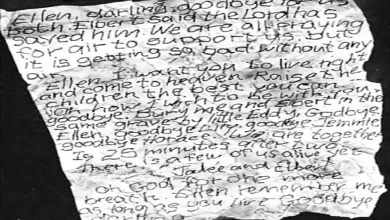 Ellen, darling, goodbye for us
both. Elbert said the Lord has
saved him. We are all praying
for air to support us, but
it is getting so bad without any
air.
Ellen I want you to live right
and come to heaven. Raise the
children the best you can.
Oh how I wish to be with you.
goodbye. Bury me and Elbert in the
same grave by little Eddy. Godbye
Ellen, goodbye Lily, goodbye Jemmie,
goodbye Horace. We are together.
Is 25 minutes after two.
There is a few of us alive yet.
Jake and Elbert
oh God for one more
breath. Ellen remember me
as long as you live Goodbye